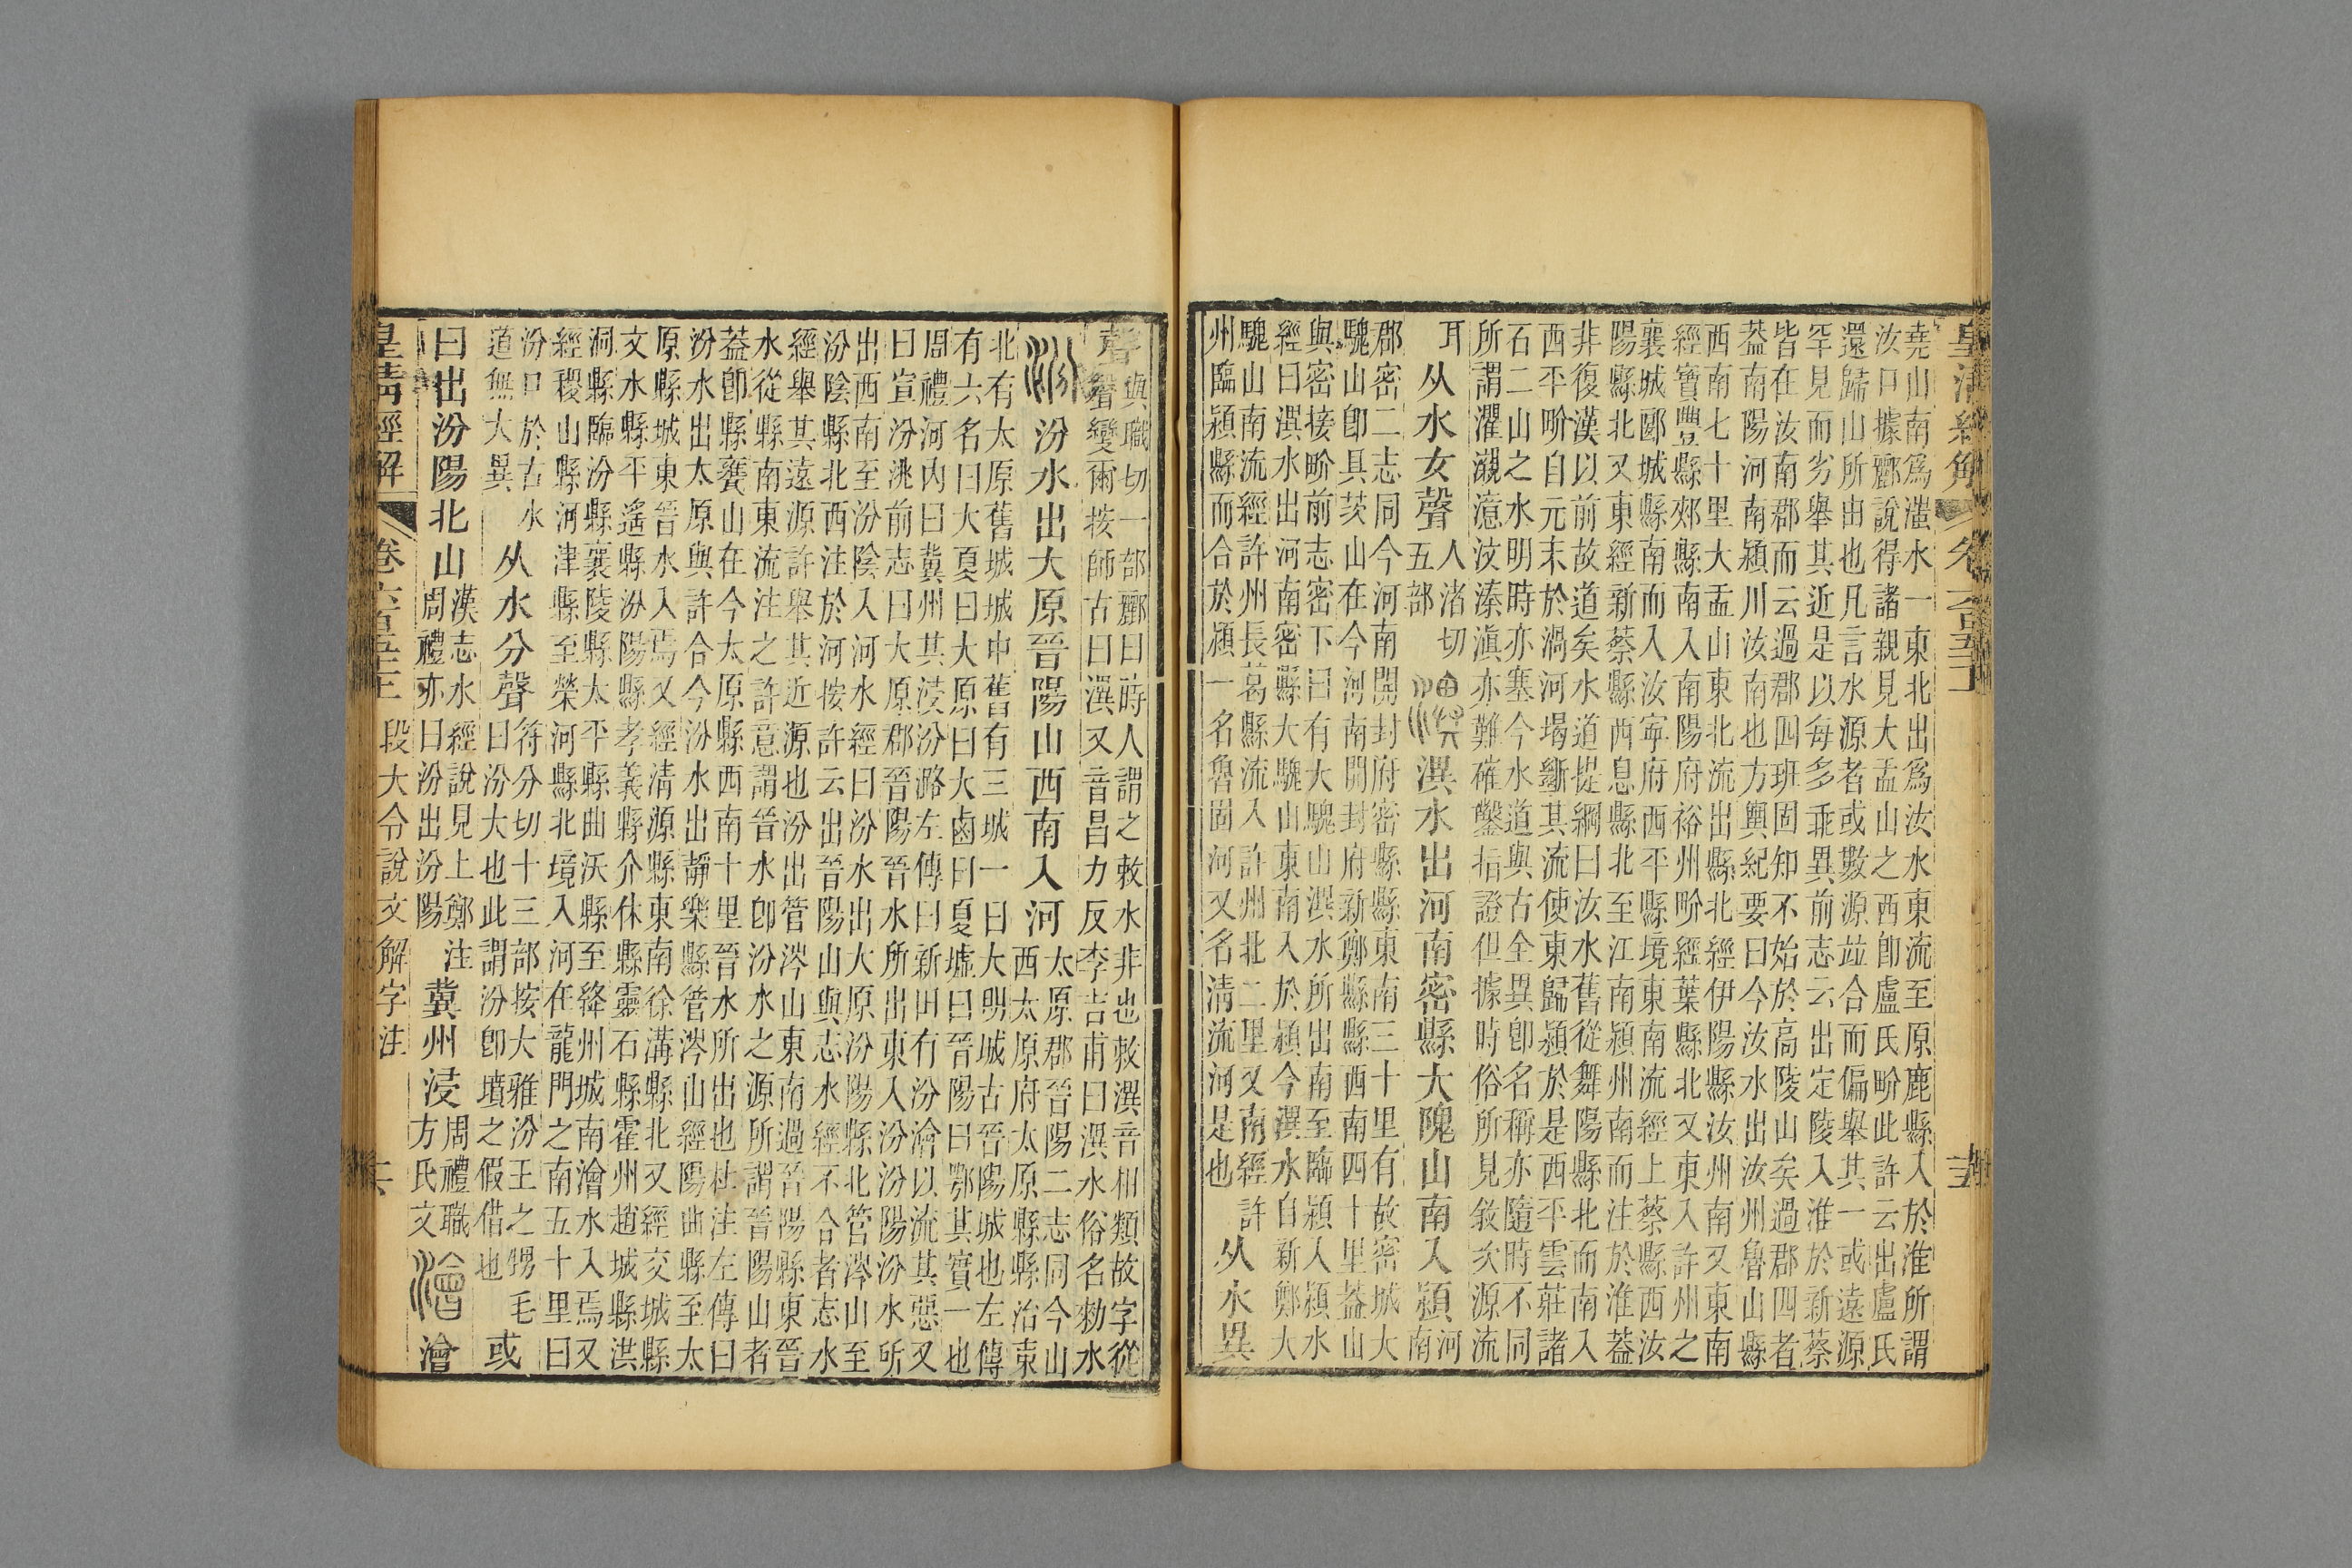 堯山南爲滍水一東北出爲汝水東流至原鹿縣入於淮所謂
汝口據酈說得諸親見大盂山之西卽盧氏畍此許云出盧氏
還歸山所出也凡言水源者或數源竝合而偏舉其一或遠源
罕見而劣舉其近是以每多乖異前志云出定陵入淮於新蔡
皆在汝南郡而云過郡四班固知不始於高陵山矣過郡四者
葢南陽河南潁川汝南也方輿紀要曰今汝水出汝州魯山縣
西南七十里大盂山東北流出縣北經伊陽縣汝州南又東南
經寶豐縣郟縣南入南陽府裕州畍經葉縣北又東入許州之
襄城郾城縣南而入汝寧府西平縣境東南流經上蔡縣西汝
陽縣北又東經新蔡縣西息縣北至江南潁州南而注於淮葢
非復漢以前故道矣水道提綱曰汝水舊從舞陽縣北而南入
西平畍自元末於渦河堨斷其流使東歸潁於是西平雲莊諸
石二山之水明時亦塞今水道與古全異卽名稱亦隨時不同
所謂灈瀙澺汶溱滇亦難確鑿指證但據時俗所見敘次源流
耳
从水女聲
人渚切
五部
瀷水出河南密縣大隗山南入潁
河
南
郡密二志同今河南開封府密縣縣東南三十里有故密城大
騩山卽具茨山在今河南開封府新鄭縣縣西南四十里葢山
與密接畍前志密下曰有大騩山瀷水所出南至臨潁入潁水
經曰瀷水出河南密縣大騩山東南入於潁今瀷水自新鄭大
騩山南流經許州長葛縣流入許州北二里又南經許
州臨潁縣而合於潁一名魯固河又名清流河是也
从水異
聲
與職切一部酈曰蒔人謂之敕水非也敕瀷音相類故字從
聲變爾按師古曰瀷又音昌力反李吉甫曰瀷水俗名勑水
汾水出大原晉陽山西南入河
太原郡晉陽二志同今山
西太原府太原縣縣治東
北有太原舊城城中舊有三城一曰大明城古晉陽城也左傳
有六名曰大夏曰大原曰大鹵曰夏墟曰晉陽曰鄂其實一也
周禮河內曰冀州其浸汾潞左傳曰新田有汾澮以流其惡又
曰宣汾洮前志曰大原郡晉陽晉水所出東入汾汾陽汾水所
出西南至汾陰入河水經曰汾水出大原汾陽縣北管涔山至
汾陰縣北西注於河按許云出晉陽山與志水經不合者志水
經舉其遠源許舉其近源也汾出管涔山東南過晉陽縣東晉
水從縣南東流注之許意謂晉水卽汾水之源所謂晉陽山者
葢卽縣甕山在今太原縣西南十里晉水所出也杜注左傳曰
汾水出太原與許合今汾水出靜樂縣管涔山經陽曲縣至太
原縣城東晉水入焉又經清源縣東南徐溝縣北又經交城縣
文水縣平遙縣汾陽縣孝義縣介休縣靈石縣霍州趙城縣洪
洞縣臨汾縣襄陵縣太平縣曲沃縣至絳州城南澮水入焉又
經稷山縣河津縣至榮河縣北境入河在龍門之南五十里曰
汾口於古水
道無大異
从水分聲
符分切十三部按大雅汾王之甥毛
曰汾大也此謂汾卽墳之假借也
或
曰出汾陽北山
漢志水經說見上鄭注
周禮亦曰汾出汾陽
冀州浸
周禮職
方氏文
澮
皇清經解
段大令說文解字注